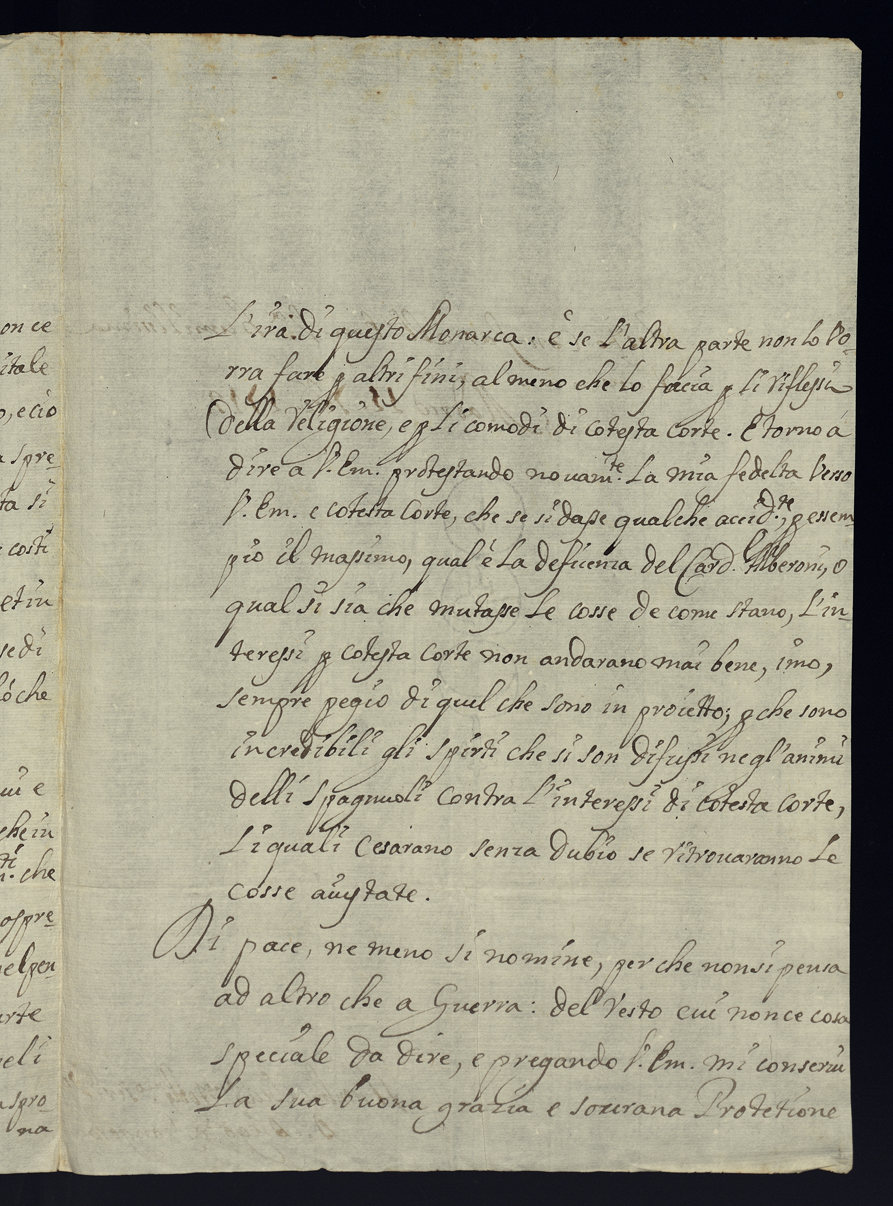 on ce
itale
o, e cio
a spre-
ta si
costi
et in
se di
ló che
ui e
che in
che
ospre-
nel pen-
arte
eli
a spro-
na
L'ira di questo Monarca: è se L'altra parte non lo Vo-
rra fare p altri fini, al meno che lo facia p li riflessi
della Religione, e p li comodi di cotesta corte. E torno á
dire a V. Em. protestando novam.te La mia fedelta Verso
V. Em. e cotesta Corte, che se si dasse qualche accid.te, p essem-
pio il massimo, qual'é La deficenza del Card. Alberoni, o
qual si sia che mutasse Le cosse de come stano, L'in-
teressi p cotesta corte non andarano mai bene, imo,
sempre pegio di quel che sono in proietto; p che sono
incredibili gli spirti che si son difussi negl'animi
delli Spagnuoli contra L'interessi di cotesta corte,
Li quali Cesarano senza dubio se ritrovaranno Le
cosse aiustate.
Di pace, ne meno si nomine, per che non si pensa
ad altro che a Guerra: del resto cui non ce cosa
speciale da dire, e pregando V. Em. mi conservi
La sua buona grazia e sovrana Protetione